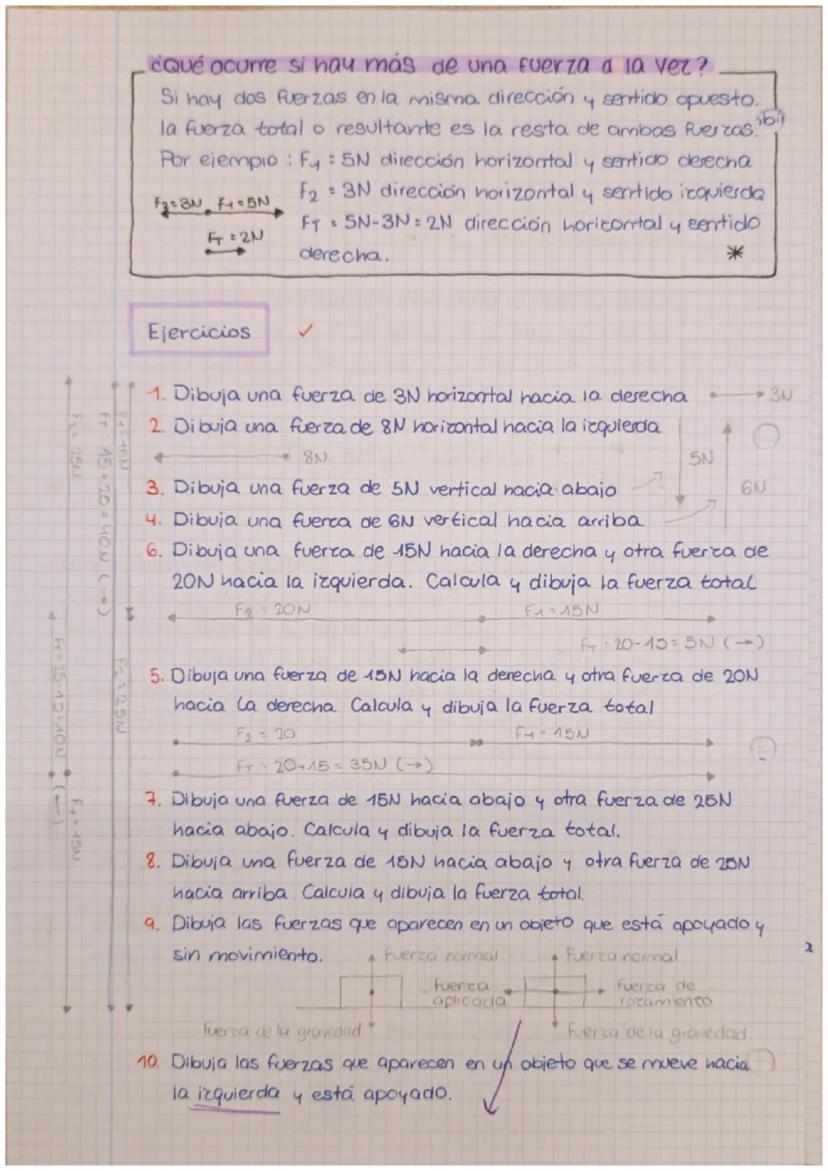 ¿Qué ocurre si hay más de una fuerza a la vez?
Si hay dos fuerzas en la misma dirección y sentido opuesto.
la fuerza total o resultante es la resta de ambas fuerzas.
Por ejemplo: F1 = 5N dirección horizontal y sentido derecha
F2 = 3N dirección horizontal y sentido izquierda
F2=3N F1=5N
FT = 5N-3N=2N dirección horizontal y sentido
FT = 2N
derecha. *
Ejercicios ✓
1. Dibuja una fuerza de 3N horizontal hacia la derecha 3N
2. Dibuja una fuerza de 8N horizontal hacia la izquierda
8N
5N
3. Dibuja una fuerza de 5N vertical hacia abajo
6N
4. Dibuja una fuerza de 6N vertical hacia arriba
6. Dibuja una fuerza de 15N hacia la derecha y otra fuerza de
20N hacia la izquierda. Calcula y dibuja la fuerza total
F2 = 20N F1 = 15N
FT = 20-15 = 5N (→)
5. Dibuja una fuerza de 15N hacia la derecha y otra fuerza de 20N
hacia la derecha Calcula y dibuja la fuerza total
F2 = 20 F1 = 15N
FT = 20+15 = 35N (→)
7. Dibuja una fuerza de 15N hacia abajo y otra fuerza de 25N
hacia abajo. Calcula y dibuja la fuerza total.
8. Dibuja una fuerza de 15N hacia abajo y otra fuerza de 25N
hacia arriba. Calcula y dibuja la fuerza total.
9. Dibuja las fuerzas que aparecen en un objeto que está apoyado y
sin movimiento.
Fuerza normal Fuerza normal
fuerza aplicada
fuerza de rozamiento
fuerza de la gravedad Fuerza de la gravedad
10. Dibuja las fuerzas que aparecen en un objeto que se mueve hacia
la izquierda y está apoyado.
2
F1 = 15N
F2 = 25N
FT = 15+20=40N (→)
F2 = 25N
F1 = 15N
FT = 25-15=10N (←)